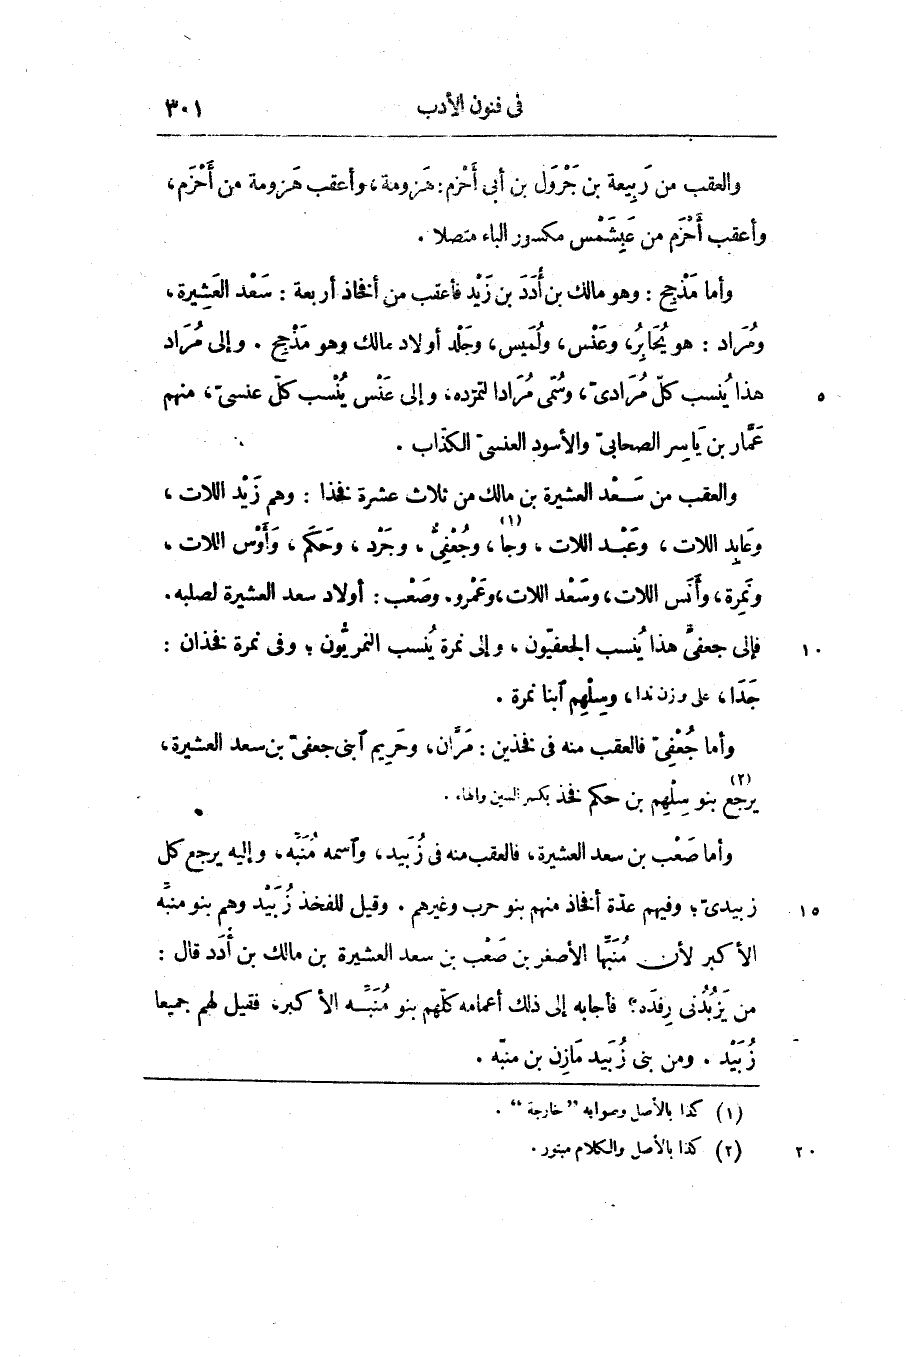 فى فنون الأدب ٣٠١
والعقب من رَبِيعة بن جَرْوَل بن أبى أَخْزم: هَزومة، وأعقب هَزومة من أَخْزَم،
وأعقب أَخْزَم من عَبِشَمْس مكسور الباء متصلا .
وأما مَذْحِج : وهو مالك بن أُدَدَ بن زَيْد فأعقب من أفخاذ أربعة : سَعْد العَشِيرة،
ومُرَاد : هو يُحَابِرُ، وعَنْس، ولُمَيس، وجَلْد أولاد مالك وهو مَذْحِج . وإلى مُرَاد
هذا يُنسب كلّ مُرَادىّ، وسُمّى مُرَادا لتمرّده، وإلى عَنْس يُنْسب كلّ عنسىّ، منهم ٥
عَمَّار بن يَاسِر الصحابىّ والأسود العنسىّ الكذّاب .
والعقب من سَعْد العشيرة بن مالك من ثلاث عشرة فخذا : وهم زَيْد اللات ،
وعَابِد اللات ، وعَبْد اللات ، وجا(١) ، وجُعْفِىٌّ ، وجَرْد ، وحَكَم ، وأَوْس اللات ،
ونَمِرة، وأَنَس اللات، وسَعْد اللات، وعَمْرو. وصَعْب : أولاد سعد العشيرة لصلبه.
فإلى جعفىٍّ هذا يُنسب الجعفيّون ، وإلى نمرة يُنسب النمريُّون ؛ وفى نمرة فخذان : ١٠
جَدَا، على وزن ندا، وسِلْهِم ٱبنا نمرة .
وأما جُعْفِىّ فالعقب منه فى فخذين : مَرَّان، وحَرِيم ٱبنى جعفىّ بن سعد العشيرة،
يرجع(٢) بنو سِلْهِم بن حكم فخذ بكسر السين والهاء .
وأما صَعْب بن سعد العشيرة، فالعقب منه فى زُبَيد، وٱسمه مُنَبِّه، وإليه يرجع كل
زبيدىّ؛ وفيهم عدّة أفخاذ منهم بنو حرب وغيرهم . وقيل للفخذ زُبَيْد وهم بنو منبِّه ١٥
الأكبر لأن مُنَبِّها الأصغر بن صَعْب بن سعد العشيرة بن مالك بن أُدَد قال :
من يَزْبُدُنى رِفدَه؟ فأجابه إلى ذلك أعمامه كلّهم بنو مُنَبِّه الأكبر، فقيل لهم جميعا
زُبَيْد . ومن بنى زُبَيد مَازِن بن منبّه .
(١) كذا بالأصل وصوابه "خارجة" .
(٢) كذا بالأصل والكلام مبتور . ٢٠